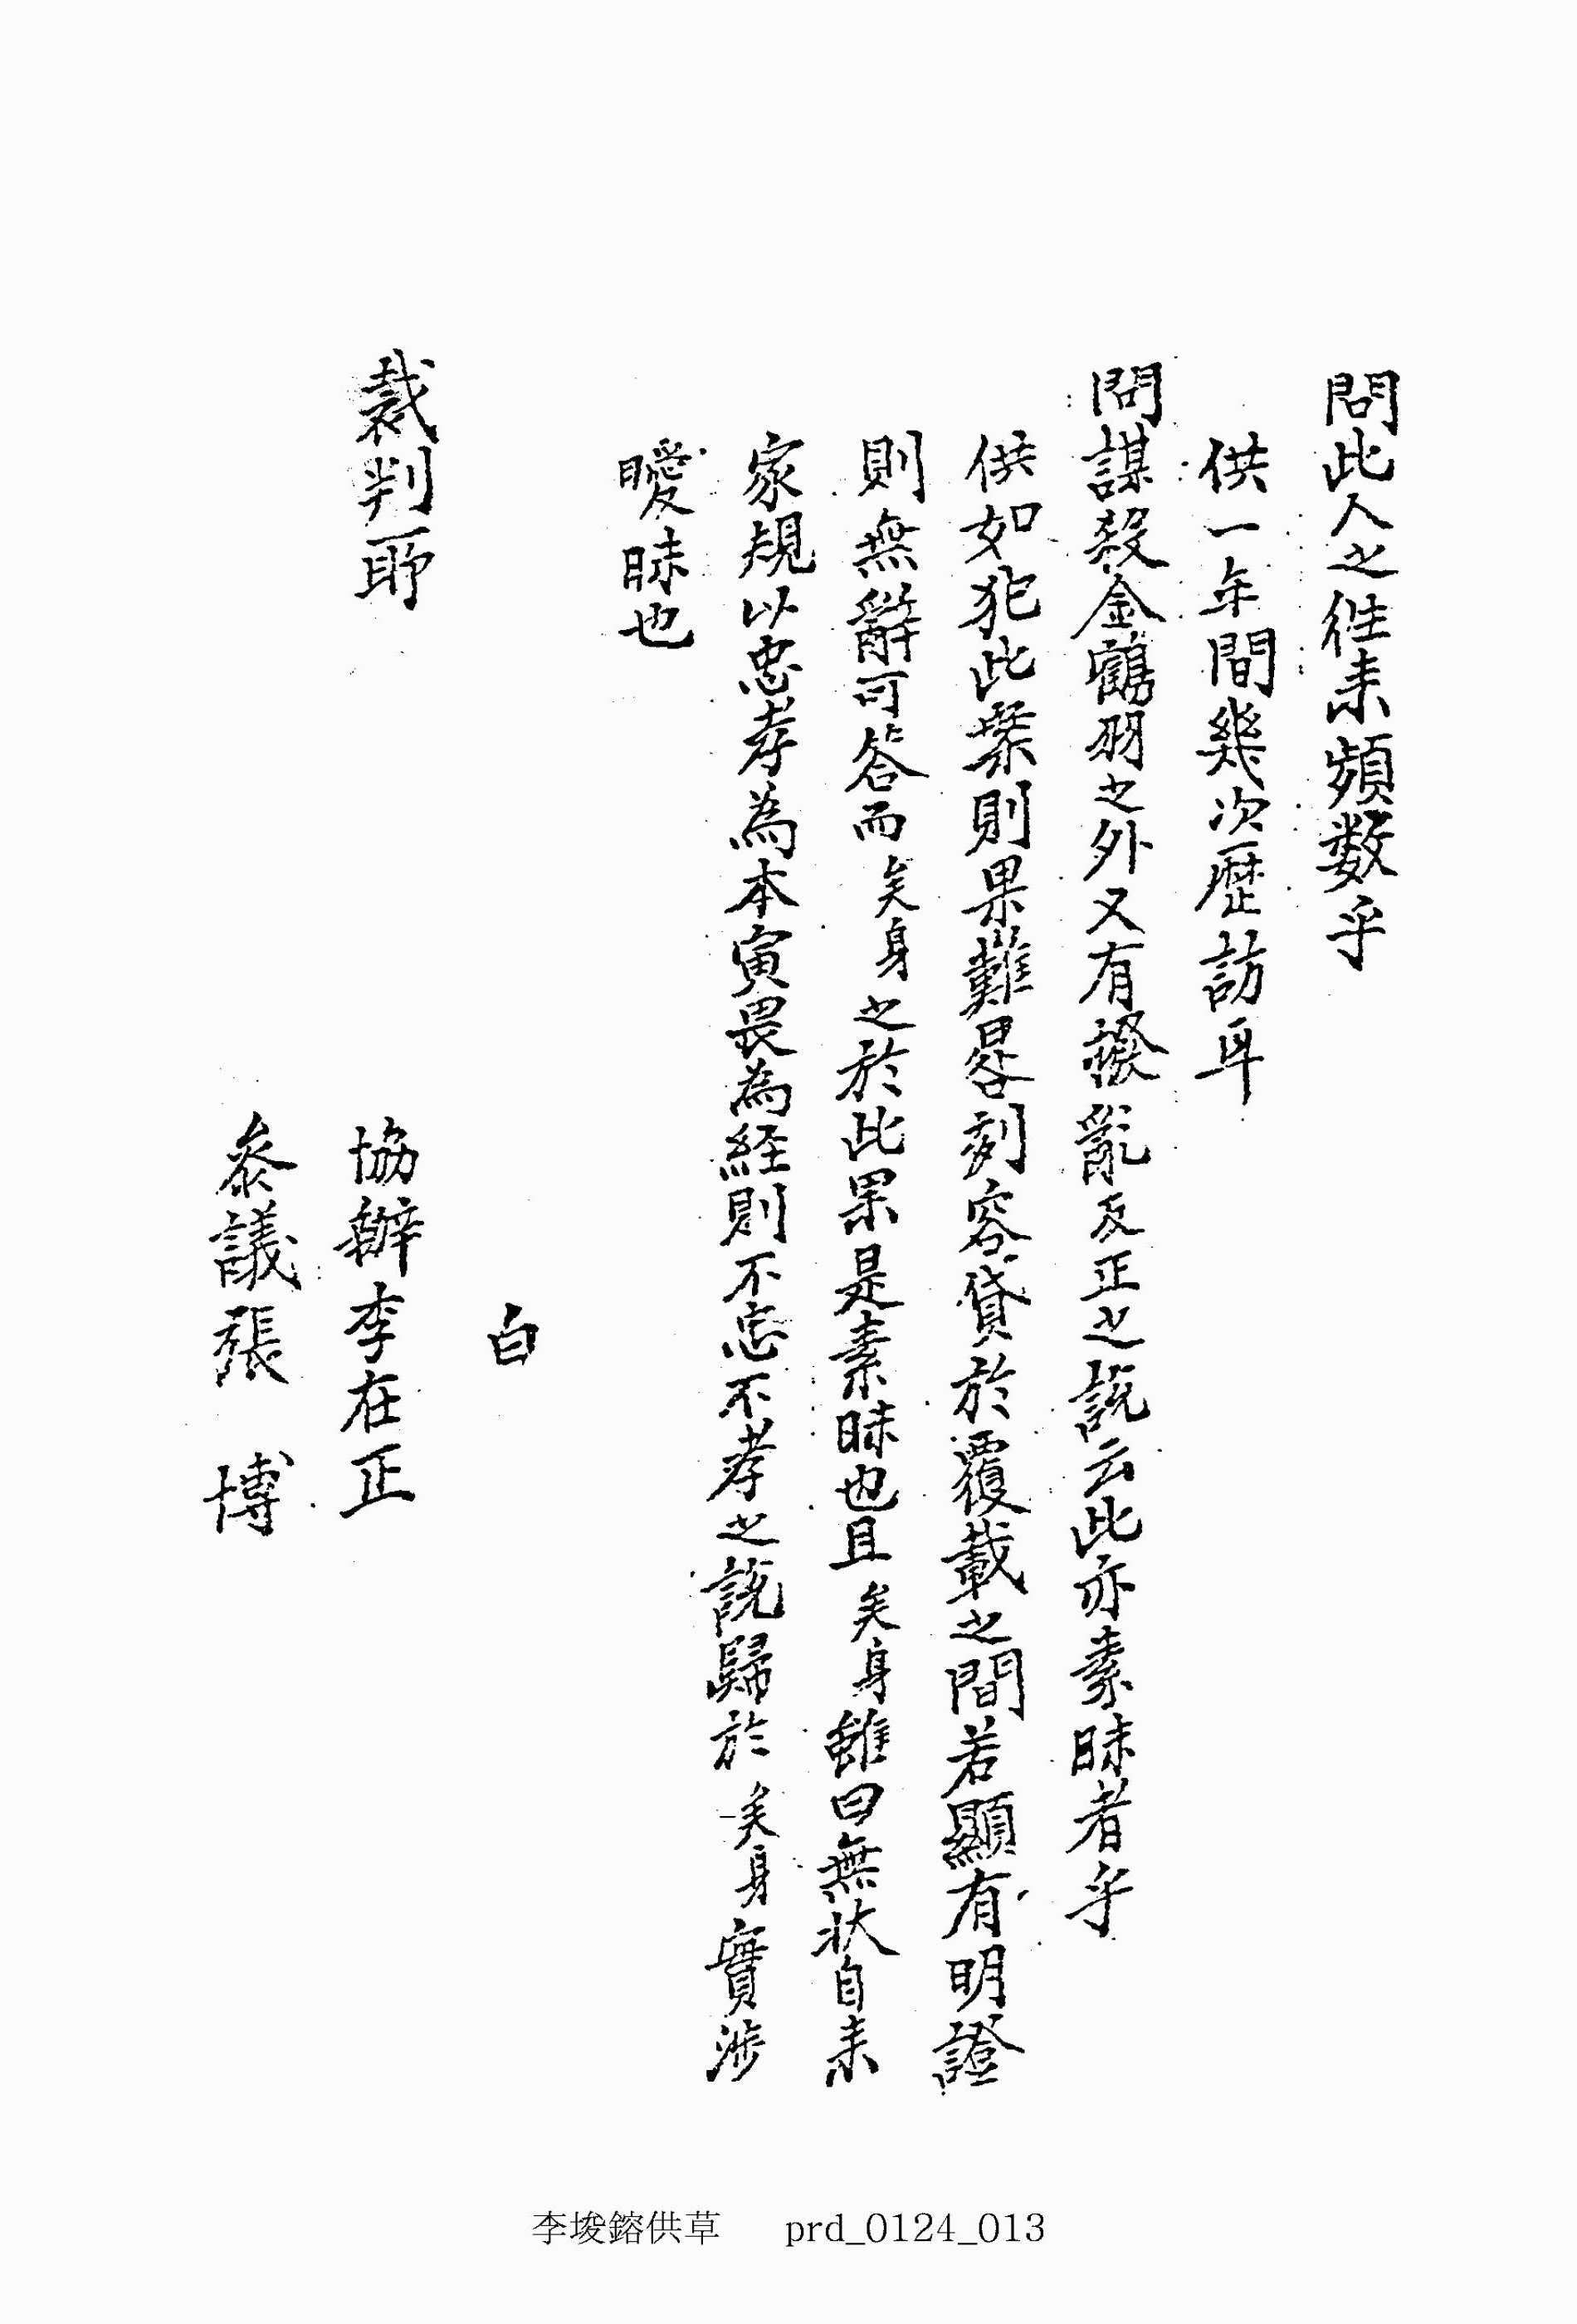 問此人之徃来頻數乎
供一年間幾次歷訪耳
問謀殺金鶴羽之外又有撥亂反正之說云此亦素昧者乎
供如犯此案則果難晷刻容貸於覆載之間若顯有明證
則無辭可答而矣身之於此果是素昧也且矣身雖曰無狀自来
家規以忠孝為本寅畏為経則不忠不孝之說歸於矣身實涉
曖昧也
白
裁判所
協辦李在正
參議張 博
李埈鎔供草 prd_0124_013